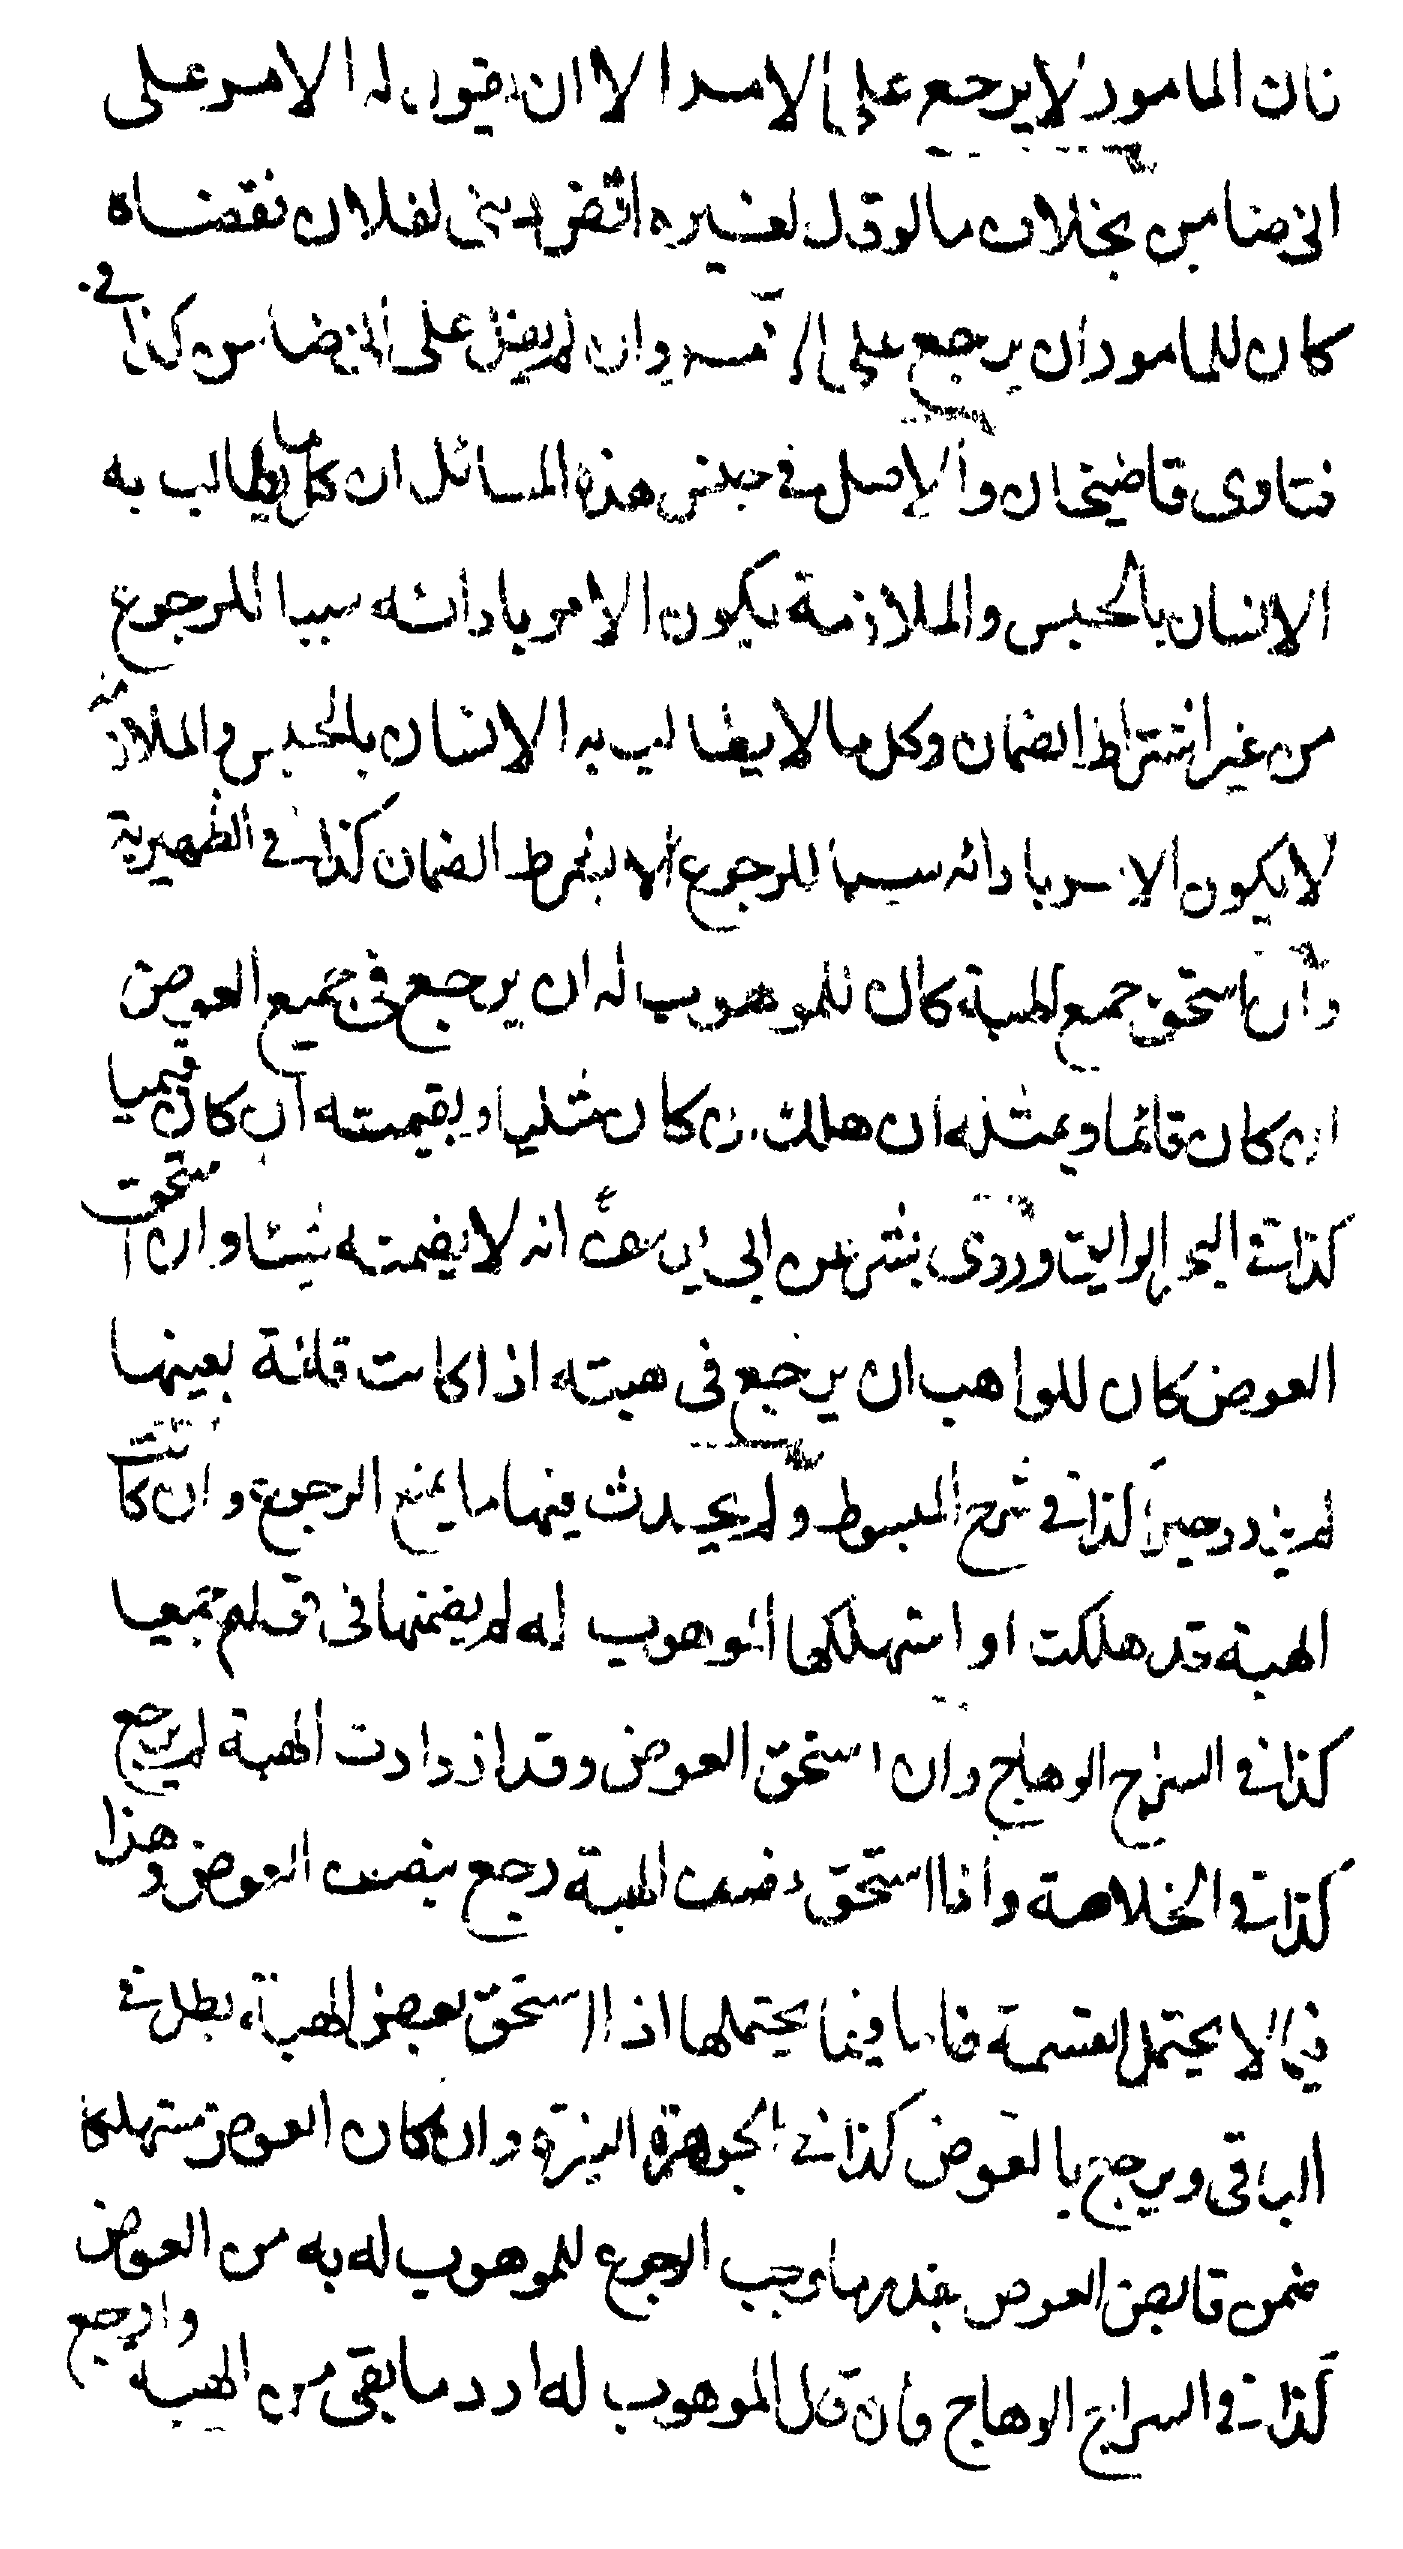 فان المامور لا يرجع على الامر الا ان يقول له الامر على
انى ضامن بخلاف ما لو قال لغيره اقض دينى لفلان فقضاه
كان للمامور ان يرجع على الامر وان لم يقل على انى ضامن كذا فى
فتاوى قاضيخان والاصل فى جنس هذه المسائل ان كل ما يطالب به
الانسان بالحبس والملازمة يكون الامر بادائه سببا للرجوع
من غير اشتراط الضمان وكل ما لا يطالب به الانسان بالحبس والملازمة
لا يكون الامر بادائه سببا للرجوع الا بشرط الضمان كذا فى الظهيرية
وان استحق جميع الهبة كان للموهوب له ان يرجع فى جميع العوض
ان كان قائما وبمثله ان هلك ان كان مثليا وبقيمته ان كان قيميا
كذا فى البحر الرائق وروى بشر عن ابى يوسف انه لا يضمنه شيئا وان استحق
العوض كان للواهب ان يرجع فى هبته اذا كانت قائمة بعينها
لم يزدد خيرا كذا فى شرح المبسوط ولم يحدث فيها ما يمنع الرجوع وان كانت
الهبة قد هلكت او استهلكها الموهوب له لم يضمنها فى قولهم جميعا
كذا فى السراج الوهاج وان استحق العوض وقد ازدادت الهبة لم يرجع
كذا فى الخلاصة واذا استحق نصف الهبة رجع بنصف العوض وهذا
فيما لا يحتمل القسمة فاما فيما يحتملها اذا استحق بعض الهبة بطل فى
الباقى ويرجع بالعوض كذا فى الجوهرة النيرة وان كان العوض مستهلكا
ضمن قابض العوض بقدر ما وجب الرجوع للموهوب له به من العوض
كذا فى السراج الوهاج وان قال الموهوب له ارد ما بقى من الهبة وارجع